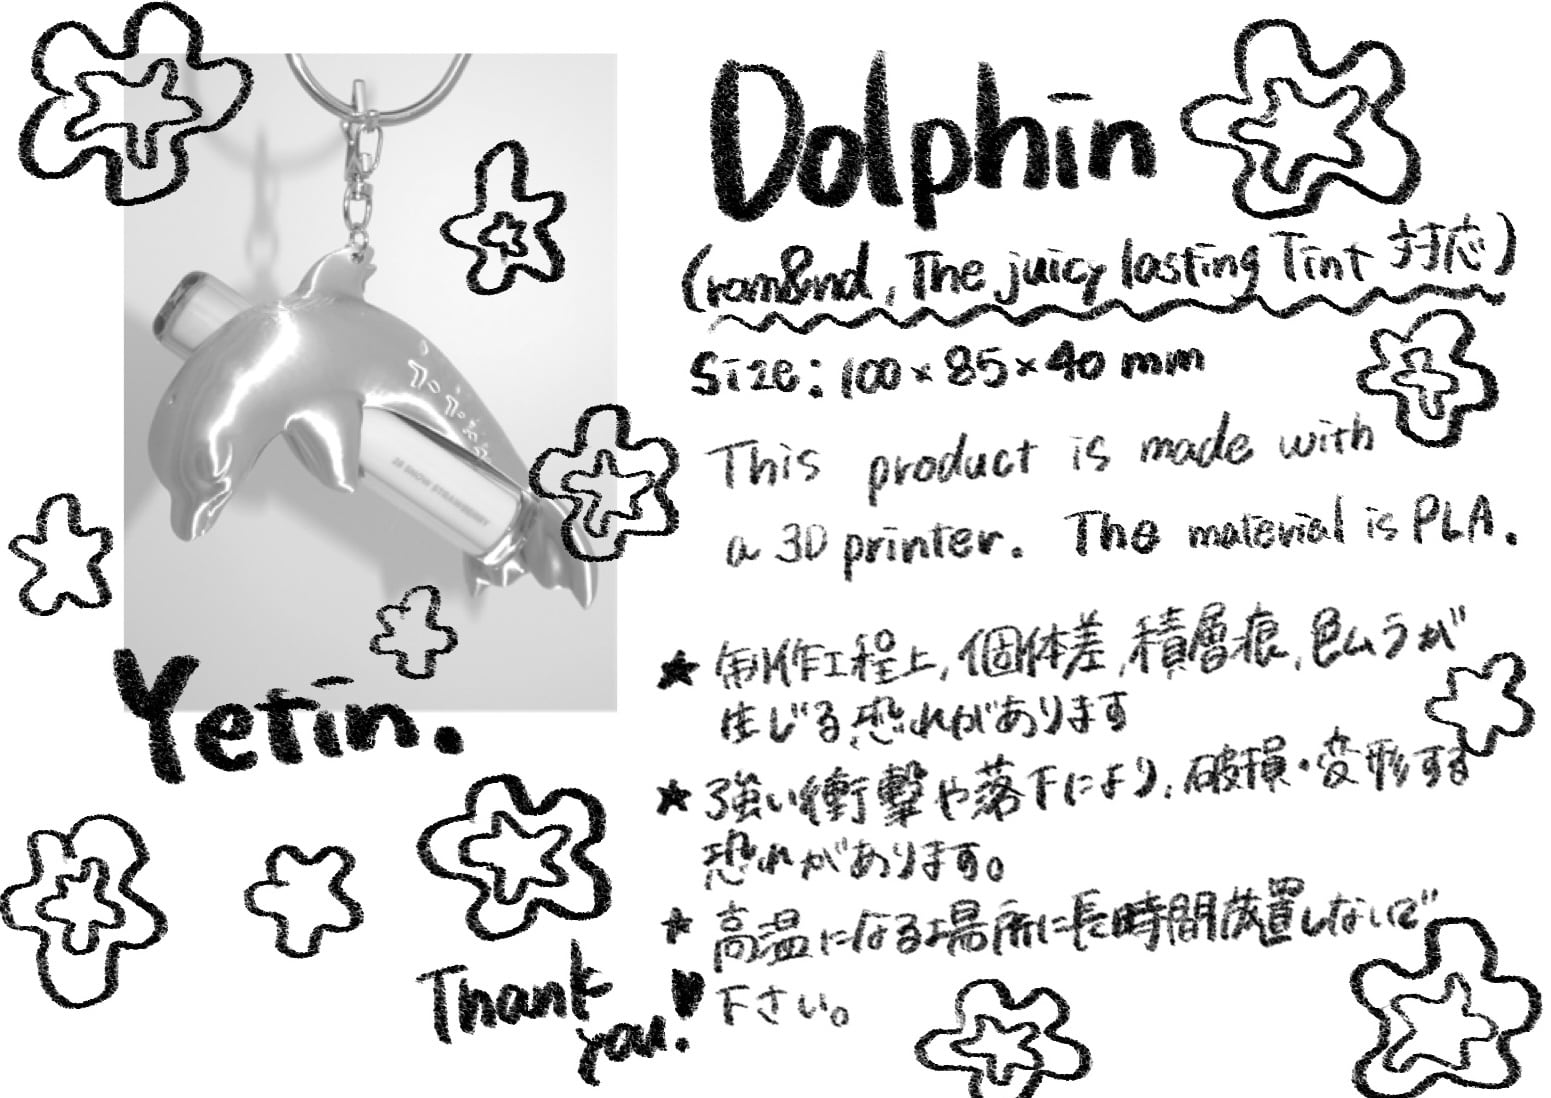 Dolphin
(rom&nd, The juicy lasting Tint 対応)
Size: 100×85×40 mm
This product is made with
a 3D printer. The material is PLA.
★ 制作工程上, 個体差, 積層痕, 色ムラが
生じる恐れがあります
★ 強い衝撃や落下により, 破損・変形する
恐れがあります。
★ 高温になる場所に長時間放置しないで
下さい。
28 SNOW STRAWBERRY
Yetin.
Thank
you!